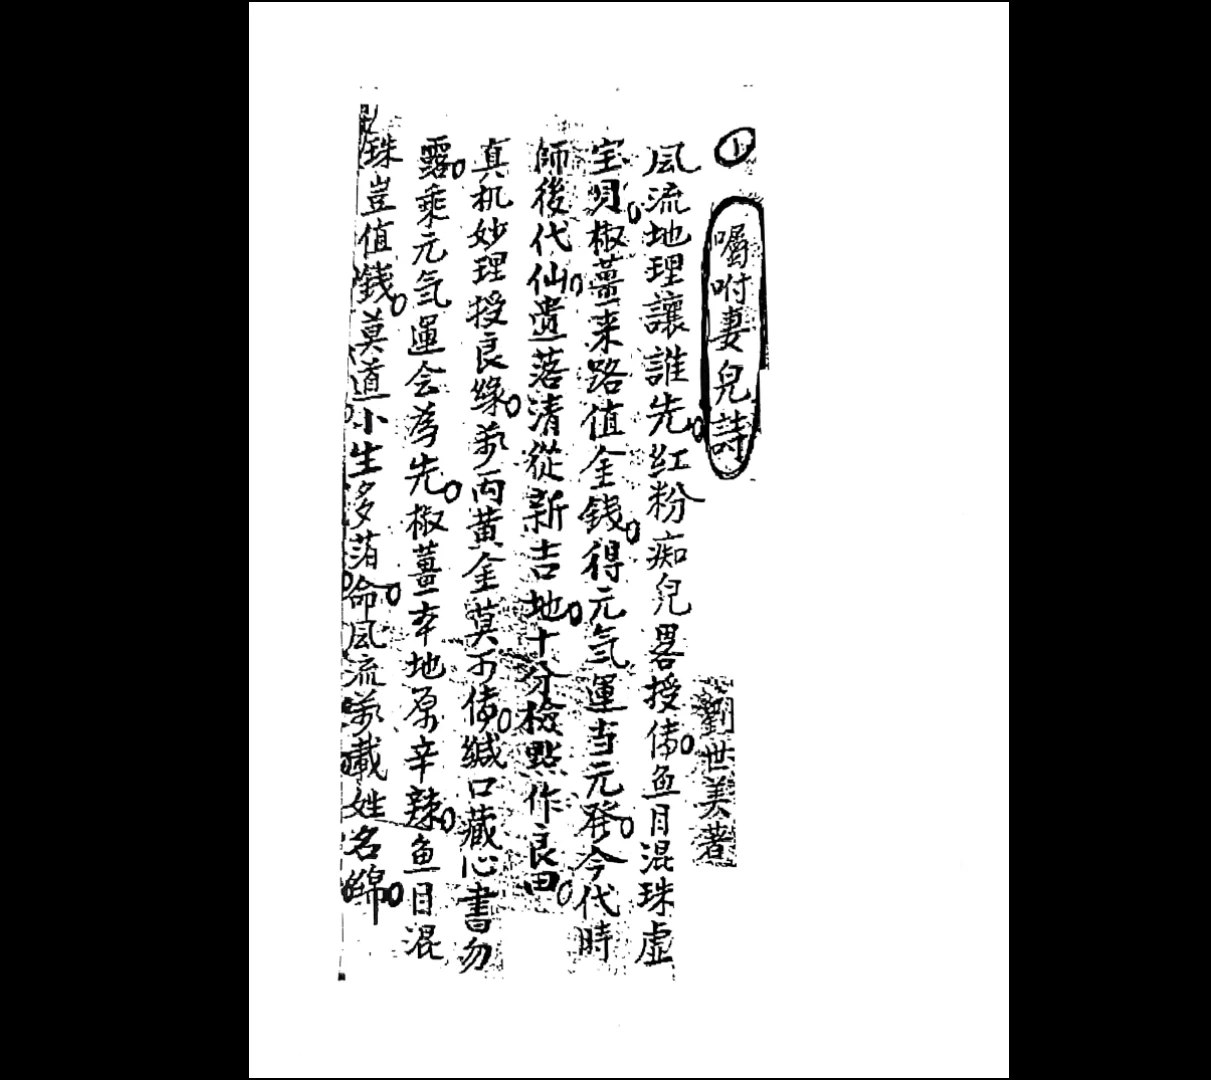 ①
囑咐妻兒詩
劉世美著
風流地理讓誰先紅粉痴兒畧授俻鱼目混珠虛
宝贝椒薑来路值金錢得元気運当元發今代時
師後代仙遗落清從新吉地十分檢點作良田
真机妙理授良缘萬両黄金莫乱俻緘口藏心書勿
露乘元気運会為先椒薑本地原辛辣鱼目混
珠豈值錢莫道小生多落命風流萬載姓名綿